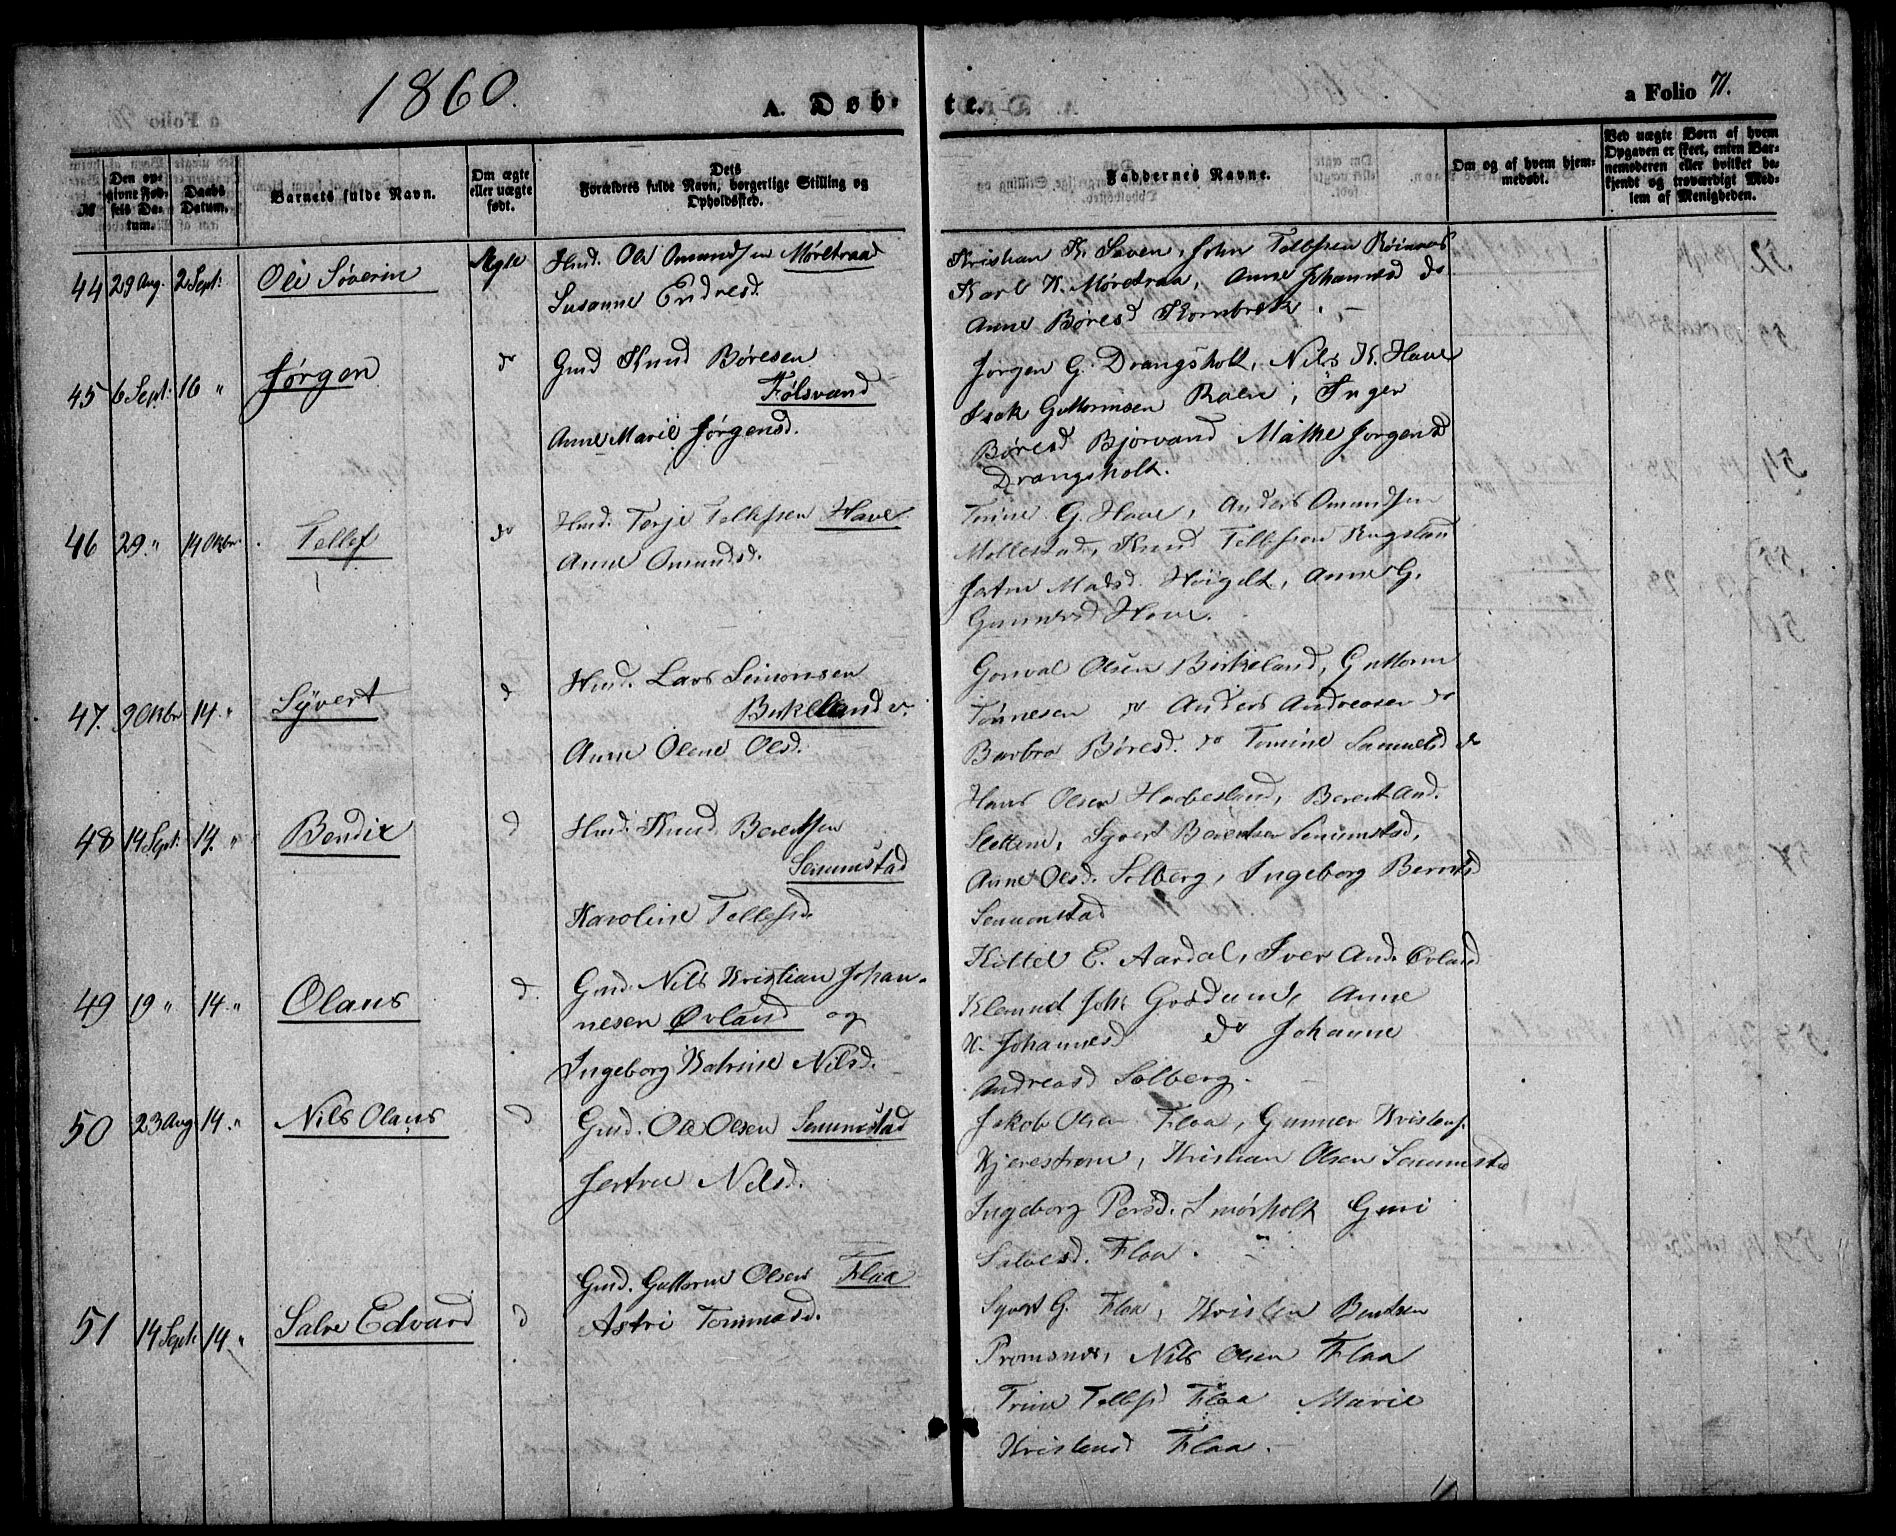 1860.
A. Døb-
te.
a Folio 71.
№
Den opgivne Fødsels Datum.
Daabs Datum.
Barnets fulde Navn.
Om ægte eller uægte født.
Dets Forældres fulde Navn, borgerlige Stilling og Opholdssted.
Faddernes Navne.
Om og af hvem hjemmedøbt.
Ved uægte Børn af hvem Opgaven er skeet, enten Barnemoderen eller hvilket bekjendt og troværdigt Medlem af Menigheden.
44 29 Aug. 2 Sept: Ole Søverin Ægte Hmd. Ole Omundsen Møretraa
Susanne Endresd.
Kristian K. Saven, John Tellefsen
Karl K. Møretraa, Anne Johannesd do
Anne Børesd Kornbrek.
45 6 Sept: 16 " Jørgen do Gmd Knud Børesen
Følsvand
Anne Marie Jørgensd.
Jørgen G. Drangsholt, Nils K. Have
Isak Guttormsen Roen, Inger
Børesd Bjorvand Mathe Jørgensd
Drangsholt.
46 29 " 14 Oktbr. Tellef do Hmd. Terje Tellefsen Have
Anne Omundsd.
Tomine G. Have, Anders Omundsen
Mollestad, Knud Tellefsen Rugsland
Jertru Madsd. Høigelt, Anne G.
Gunnersd Have.
47. 9 Oktbr 14. " Syvert d Hmd. Lars Simonsen
Birkeland
Anne Olene Olsd.
Gonval Olsen Birkeland, Guttorm
Tønnesen do Anders Andreasen do
Barbro Børesd. do Tomine Samuelsd do
48 14 Sept: 14. " Bendix d Hmd. Knud Berentsen
Senumstad
Karoline Tellefsd.
Hans Olsen Hoebesland, Berent And.
Slettene, Syvert Berentsen Senumstad,
Anne Olsd. Solberg, Ingeborg Berntsd
Senumstad
49 19 " 14. " Olaus d. Gmd. Nils Kristian Johan-
nesen Øvland og
Ingeborg Katrine Nilsd.
Kittel E. Aardal, Iver And. Øvland
Klemmet Joh. Grødum, Anne
K. Johannesd do Johanne
Andreasd Solberg.
50 23 Aug 14. " Nils Olaus d Gmd. Ole Olsen Senumstad
Jertru Nilsd.
Jakob Olsen Flaa, Gunner Kristens.
Kjerestrøm, Kristian Olsen Senumstad
Ingeborg Persd. Smørholt Guri
Salvesd. Flaa.
51 14 Sept: 14. " Salve Edvard d Gmd. Guttorm Olsen Flaa
Astri Tommesd.
Syvert G. Flaa, Kristen Bentsen
Promsnes, Nils Olsen Flaa
Trine Tellefsd Flaa Marie
Kristensd Flaa.